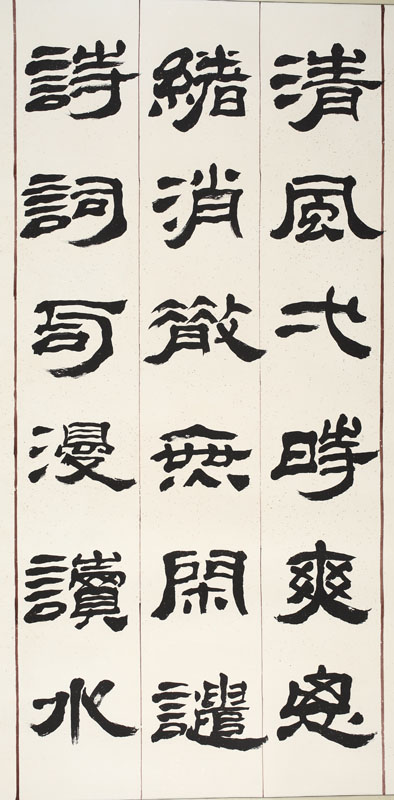 清風弋時爽思
緒消徹無閑譴
詩詞可漫讀水